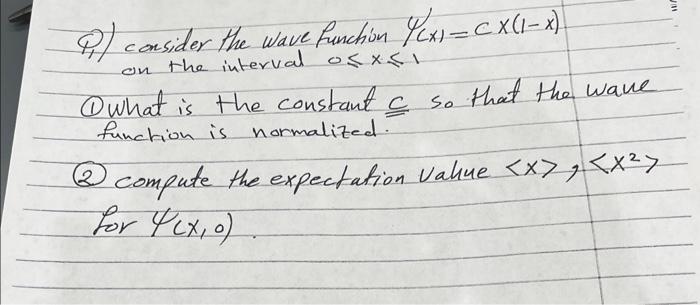 Q1) consider the wave function Ψ(x) = C x(1-x)
on the interval 0 ≤ x ≤ 1
① what is the constant C so that the wave
function is normalized.
② compute the expectation value <x>, <x²>
for Ψ(x,0).